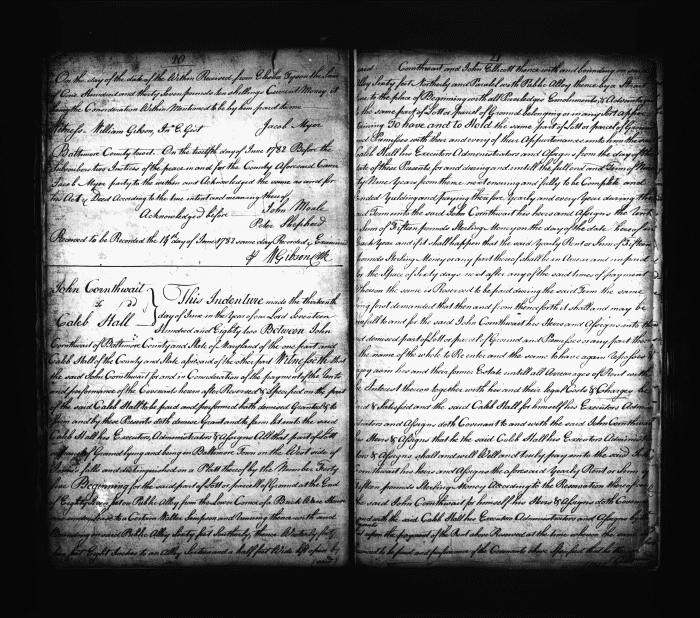 10
On the day of the date of the Within Received from Elisha Tyson the Sum
of One Hundred and thirty Seven pounds ten shillings Current Money it
being the Consideration Within Mentioned to be by him paid me
Witness William Gibson, Jno. C. Gist Jacob Myer
Baltimore County to wit. On the twelfth day of June 1782 Before the
Subscribers two Justices of the peace in and for the County Aforesaid Came
Jacob Myer party to the within and Acknowledged the same as and for
his Act & Deed According to the true intent and meaning thereof
Acknowledged before John Moale
Peter Shepherd
Received to be Recorded the 14th day of June 1782 same day Recorded & Examined
℔ Wm Gibson Clk
John Cornthwait
to
Caleb Hall
This Indenture made the thirteenth
day of June in the Year of our Lord Seventeen
Hundred and Eighty two Between John
Cornthwait of Baltimore County and State of Maryland of the one part and
Caleb Hall of the County and State aforesaid of the other part Witnesseth that
the said John Cornthwait for and in Consideration of the payment of the Rents
and performance of the Covenants herein after Reserved & Specified on the part
of the said Caleb Hall to be paid and performed hath demised Granted & to
farm let and by these Presents doth demise Grant and to farm let unto the said
Caleb Hall his Executors, Administrators & Assigns All that part of Lott
of Ground lying and being in Baltimore Town on the West side of
falls and distinguished on a Plott thereof by the Number Forty
five Beginning for the said part of Lott or parcel of Ground at the End
of Eighty feet on Public Alley from the Lower Corner of a Brick House
to a Certain Walter Simpson and Running thence with and
Bounding on said Public Alley Sixty feet Southerly, thence Westerly
feet Eight Inches to an Alley Sixteen and a half feet Wide left open by
said
said Cornthwait and John Ellicott thence with and bounding on
Alley Sixty feet Northerly and Paralel with Public Alley thence by a Strait
to the place of Beginning with all Priviledges Emoluments & Advantages
to the same part of Lott or Parcel of Ground belonging or in any Sort
To have and to Hold the same part of Lott or parcel of
and Premises with their and every of their Appurtenances unto him the
Caleb Hall his Executors Administrators and Assigns from the day of the
date of these Presents for and during and untill the full end and Term of
ty Nine Years from thence next ensuing and fully to be Complete and
Ended Yeilding and paying therefore Yearly and every Year during the
said Term unto the said John Cornthwait his heirs and Assigns the Rent
Sum of Fifteen pounds Sterling Money on the day of the date
Each Year and if it shall happen that the said Yearly Rent or Sum of Fifteen
pounds Sterling Money or any part thereof shall be in Arrear and unpaid
by the Space of Sixty days next after any of the said times of payment
Whereon the same is Reserved to be paid during the said Term the same
being first demanded that then and from thenceforth it shall and may be
lawfull to and for the said John Cornthwait his Heirs and Assigns into the
said demised part of Lott or parcel of Ground and Premises or any part thereof
in the name of the whole to Re enter and the same to have again Repossess &
enjoy as in his and their former Estate untill all Arrearages of Rent with
Interest thereon together with his and their legal Costs & Charges
and Satisfied and the said Caleb Hall for himself his Executors
and Assigns doth Covenant to and with the said John Cornthwait
his Heirs & Assigns that he the said Caleb Hall his Executors
or Assigns shall and will Well and truly pay unto the said John
Cornthwait his Heirs and Assigns the aforesaid Yearly Rent or Sum
Fifteen pounds Sterling Money According to the Reservation thereof
the said John Cornthwait for himself his Heirs & Assigns doth Covenant
and with the said Caleb Hall his Executors Administrators and Assigns
upon the payment of the Rent above Reserved at the time whereon the same
to be paid and performance of the Covenants above Specified that he the